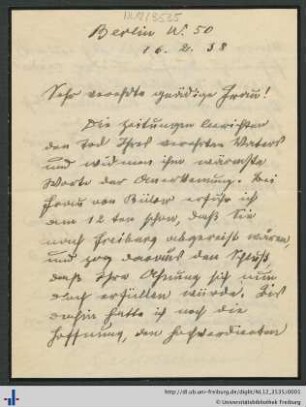 NL12/3535
Berlin W. 50
16. 2. 38
Sehr verehrte gnädige Frau!
Die Zeitungen berichten
den Tod Ihres verehrten Vaters
und widmen ihm wärmste
Worte der Anerkennung. Bei
Frau von erfuhr ich
am 12ten schon, daß Sie
nach Freiburg abgereist wären,
und zog daraus den Schluß
daß Ihre Ahnung sich nun
doch erfüllen würde. Bis
dahin hatte ich noch die
Hoffnung, den hochverdienten
http://dl.ub.uni-freiburg.de/diglit/NL12_3535/0001
© Universitätsbibliothek Freiburg